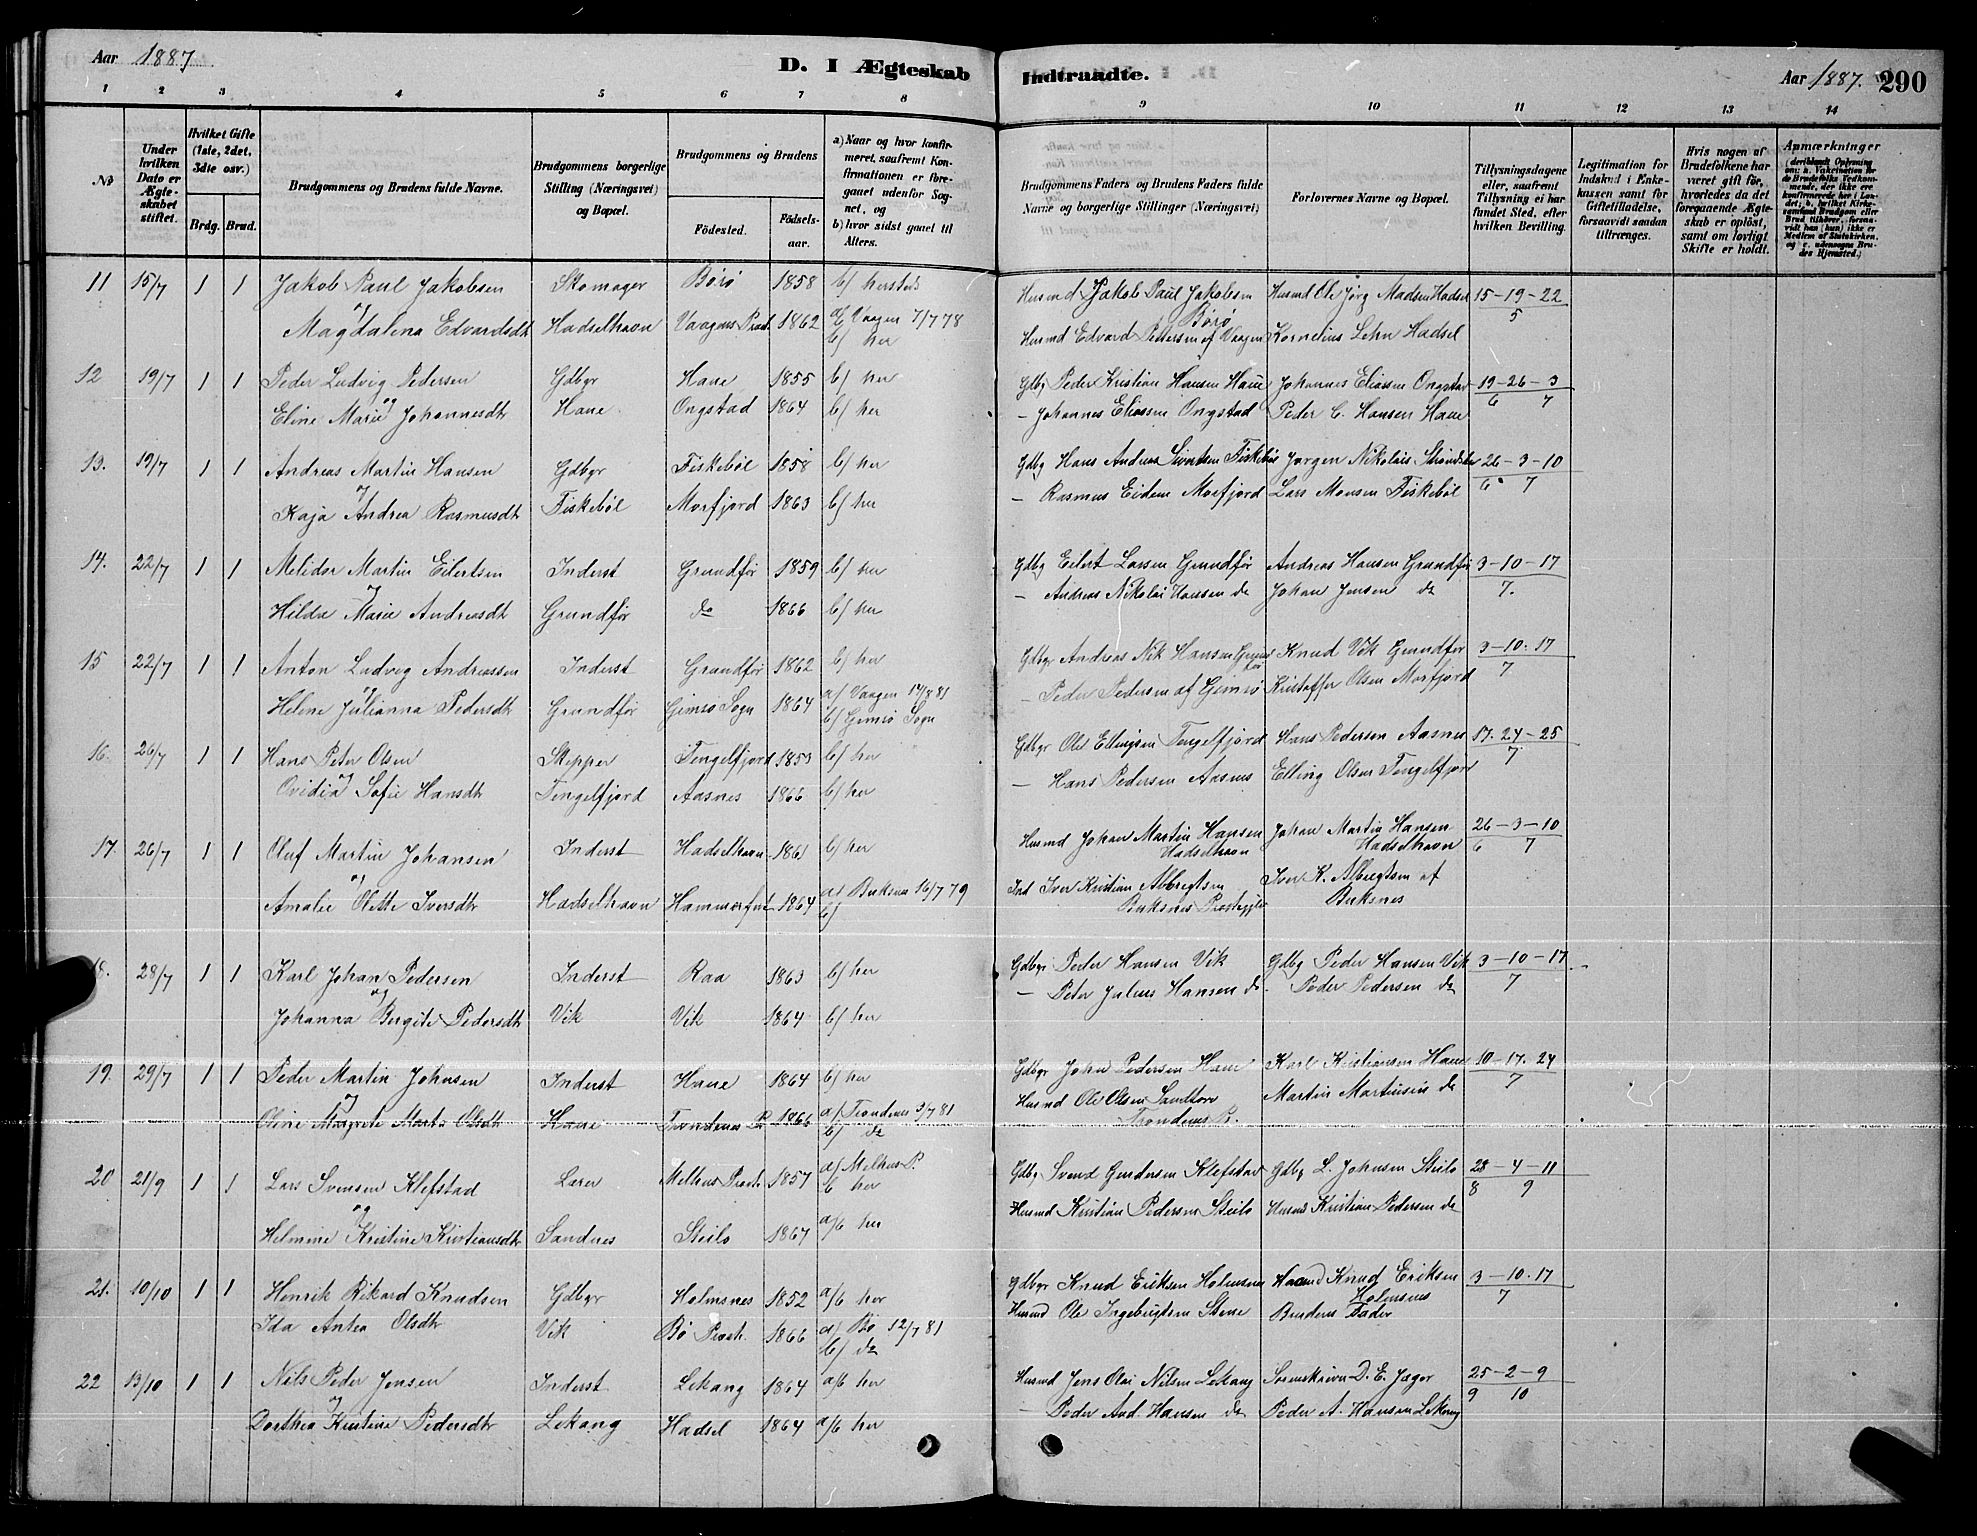 Aar 1887.
D. I Ægteskab
Indtraadte.
Aar 1887. 290
1 2 3 4 5 6 7 8 9 10 11 12 13 14
No
Under hvilken Dato er Ægteskabet stiftet.
Hvilket Gifte (1ste, 2det, 3die osv.)
Brdg. Brud.
Brudgommens og Brudens fulde Navne.
Brudgommens borgerlige Stilling (Næringsvei) og Bopæl.
Brudgommens og Brudens
Födested.
Födselsaar.
a) Naar og hvor konfirmeret, saafremt Konfirmationen er foregaaet udenfor Sognet, og
b) hvor sidst gaaet til Alters.
Brudgommens Faders og Brudens Faders fulde Navne og borgerlige Stillinger (Næringsvei)
Forlovernes Navne og Bopæl.
Tillysningsdagene eller, saafremt Tillysning ei har fundet Sted, efter hvilken Bevilling.
Legitimation for Indskud i Enkekassen samt for Giftetilladelse, forsaavidt saadan tiltrænges.
Hvis nogen af Brudefolkene har været gift för, hvorledes da det foregaaende Ægteskab er oplöst, samt om lovligt Skifte er holdt.
Anmærkninger
11 15/7 1 1 Jakob Paul Jakobsen Skomager Börö 1858 b/ hersteds Husmd Jakob Paul Jakobsen Börö Husmd Ole Jörg Madsen Hadsel 15-19-22
5
og Magdalena Edvardsdtr Hadselhavn Vaagens Prest. 1862 a/ Vaagen 7/7 78 b/ her Husmd Edvard Pettersen af Vaagen Kornelius Lehn Hadsel
12 19/7 1 1 Peder Ludvig Pedersen Gdbgr Haue 1855 b/ her Gdbg Peder Kristian Hansen Haue Johannes Eliassen Ongstad 19-26-3
6 7
og Eline Marie Johannesdtr Haue Ongstad 1864 b/ her - Johannes Eliassen Ongstad Peder C. Hansen Haue
13. 19/7 1 1 Andreas Martin Hansen Gdbgr Fiskebøl 1858 b/ her Gdbg Hans Andreas Sivertsen Fiskebøl Jørgen Nikolais 26-3-10
6 7
og Kaja Andrea Rasmusdtr Fiskebøl Morfjord 1863 b/ her - Rasmus Eidem Morfjord Lars Monsen Fiskebøl
14. 22/7 1 1 Melidor Martin Eilertsen Inderst Grundfør 1859 b/ her Gdbg Eilert Larsen Grundför Andreas Hansen Grundför 3-10-17
7.
og Hilda Marie Andreasdtr Grundför do 1866 b/ her - Andreas Nikolai Hansen do Johan Jensen do
15 22/7 1 1 Anton Ludvig Andreassen Inderst Grundför 1862 b/ her Gdbgr Andreas Nik Hansen Knud Vik Grundför 3-10.17
7
og Helene Julianna Pedersdtr Grundför Gimsø Sogn 1864 a/ Vaagen 14/8 81 b/ Gimsø Sogn - Peder Pedersen af Gimsö Kristoffer Olsen Morfjord
16. 26/7 1 1 Hans Peter Olsen Skipper Tengelfjord 1853 b/ her Gdbgr Ole Ellingsen Tengelfjord Hans Pedersen Aasnes 17.24-25
7.
og Ovidia Sofie Hansdtr Tengelfjord Aasnes 1866 b/ her - Hans Pedersen Aasnes Elling Olsen Tengelfjord
17. 26/7 1 1 Oluf Martin Johansen Inderst Hadselhavn 1861 b/ her Husmd Johan Martin Hansen Hadselhavn Johan Martin Hansen Hadselhavn 26-3-10
6 7
og Amalie Olette Iversdtr Hadselhavn Hammerfest 1864 a/ Buksnes 16/7 79 b/ Ind Iver Kristian Albregtsen Buksnes Iver K. Albregtsen af Buksnes
18. 28/7 1 1 Karl Johan Pedersen Inderst Raa 1863 b/ her Gdbgr Peder Hansen Vik Gdbg Peder Hansen Vik 3-10-17
7
og Johanna Bergite Pedersdtr Vik Vik 1864 b/ her - Peter Julius Hansen do. Peder Pedersen do
19. 29/7 1 1 Peder Martin Johnsen Inderst Haue 1864 b/ her Gdbgr John Pedersen Haue Karl Kristiansen Haue 10-17.24
7
og Oline Margrete Marta Olsdtr Haue Trondenes P. 1866 a/ Trondenes 3/7 81 b/ do Husmd Ole Olsen Sandtorv Trondenes P. Martin Martinsen do
20 21/9 1 1 Lars Svensen Klefstad Lærer Melhus Prest. 1857 a/ Melhus P. b/ her Gdbg Svend Gundersen Klefstad Gdbg L. Johnsen Steilo 28-4-11
8 9
og Helmine Kristine Kristiansdtr Sandnes Steilo 1867 a/b her Husmd Kristian Pedersen Steilo Husmd Kristian Pedersen do
21. 10/10 1 1 Henrik Rikard Knudsen Gdbgr Holmsnes 1852 a/b her Gdbgr Knud Eriksen Holmsnes Husmd Knud Eriksen Holmsnes 3-10.17
7
Ida Antea Olsdtr Vik Bø Prest. 1866 a/ Bø 12/7 81 b/ do Husmd Ole Ingebrigtsen Stene Brudens Fader
22 13/10 1 1 Nils Peder Jensen Inderst Lekang 1864 a/b her Husmd Jens Olai Nilsen Lekang Sorenskriver D. E. Jæger 25-2-9
9 10
og Dorthea Kristine Pedersdtr Lekang Hadsel 1864 a/b her - Peder And. Hansen do Peder A. Hansen Lekang